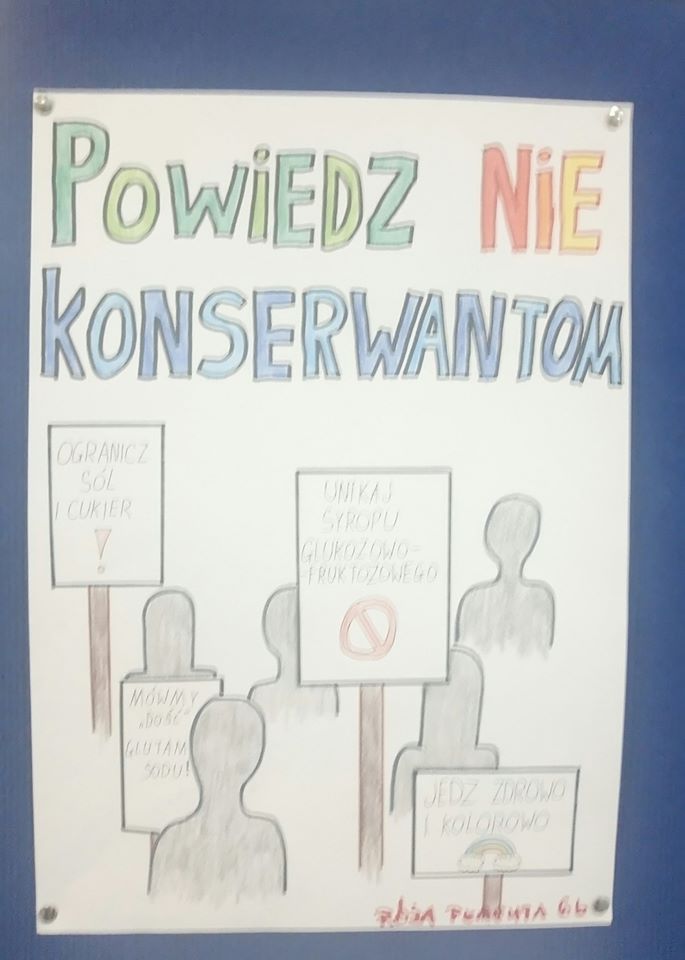 POWIEDZ NIE
KONSERWANTOM
OGRANICZ
SÓL
I CUKIER
!
UNIKAJ
SYROPU
GLUKOZOWO-
-FRUKTOZOWEGO
MÓWMY
„DOŚĆ"
GLUTAM
SODU!
JEDZ ZDROWO
I KOLOROWO
RÓŻA 6b